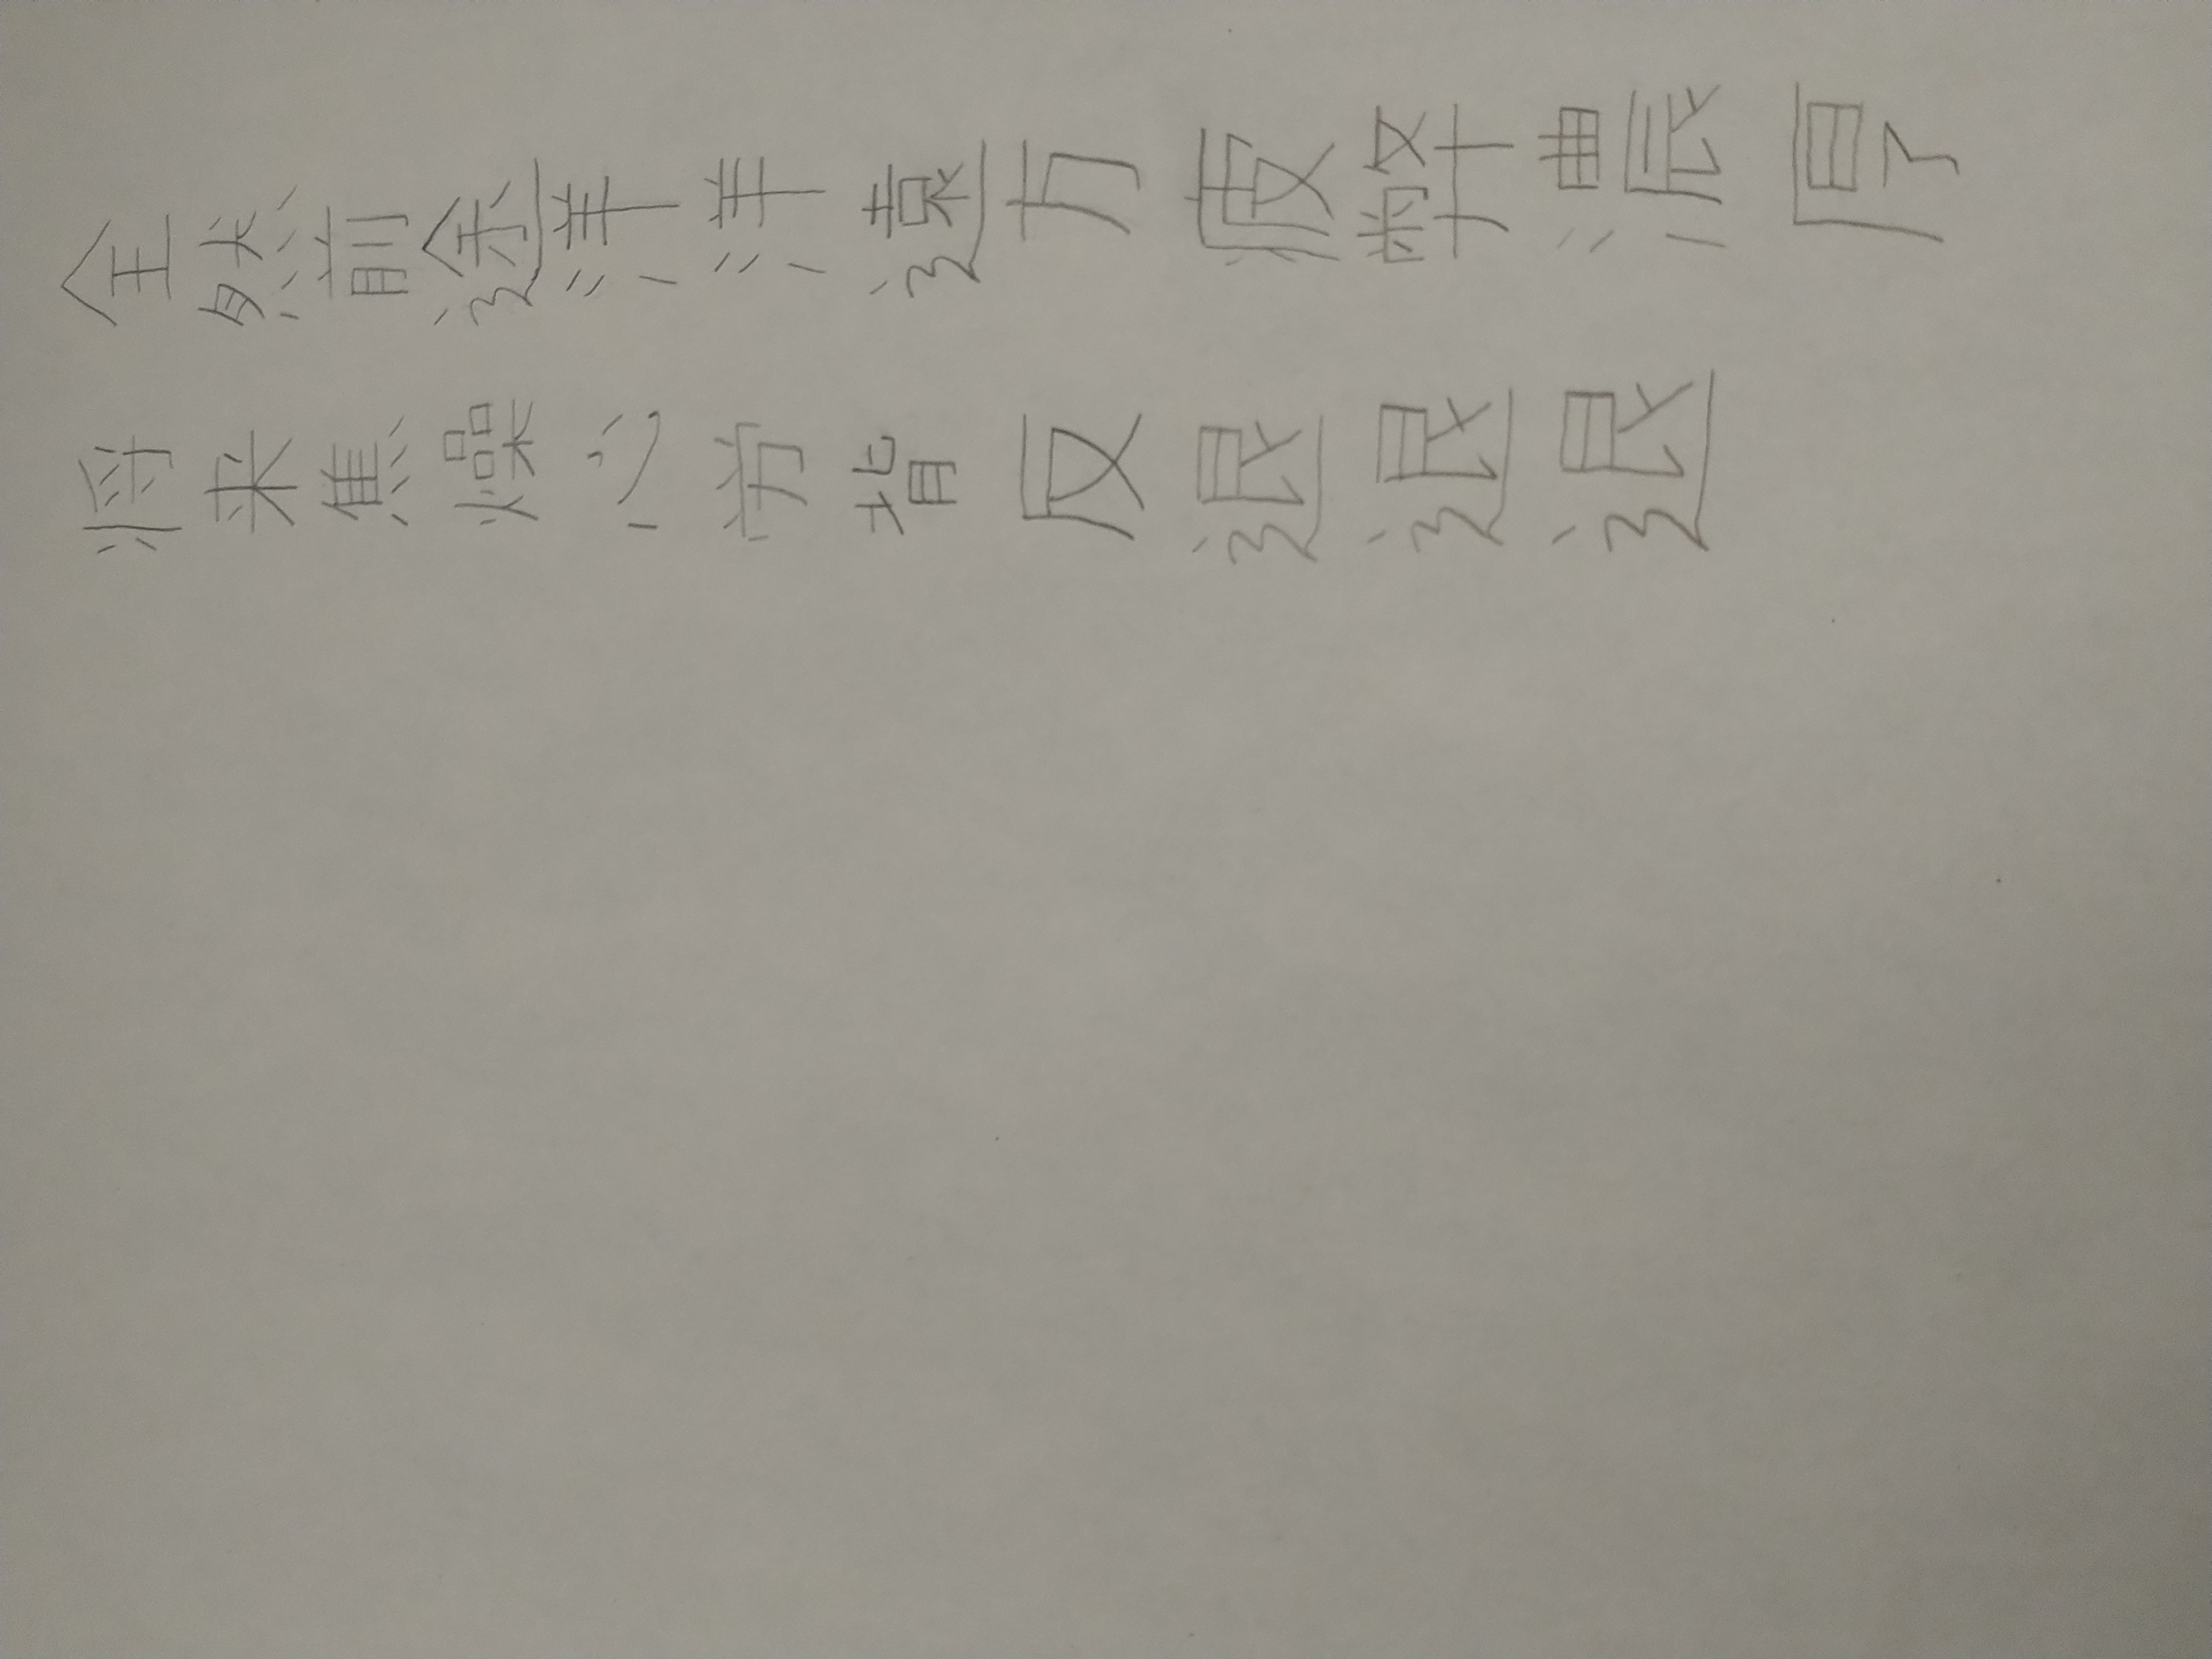 全然前途洋洋遠方疲弊濃厚
将来焦燥心労背反退退退